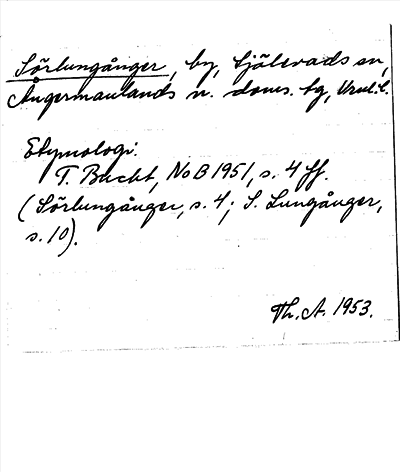 Sörlungånger, by, Själevads sn,
Ångermanlands n. doms. tg, Vnrl. l.
Etymologi:
T. Bucht, NoB 1951, s. 4 ff.
(Sörlungånger, s. 4; S. Lungånger,
s. 10).
Th. A. 1953.